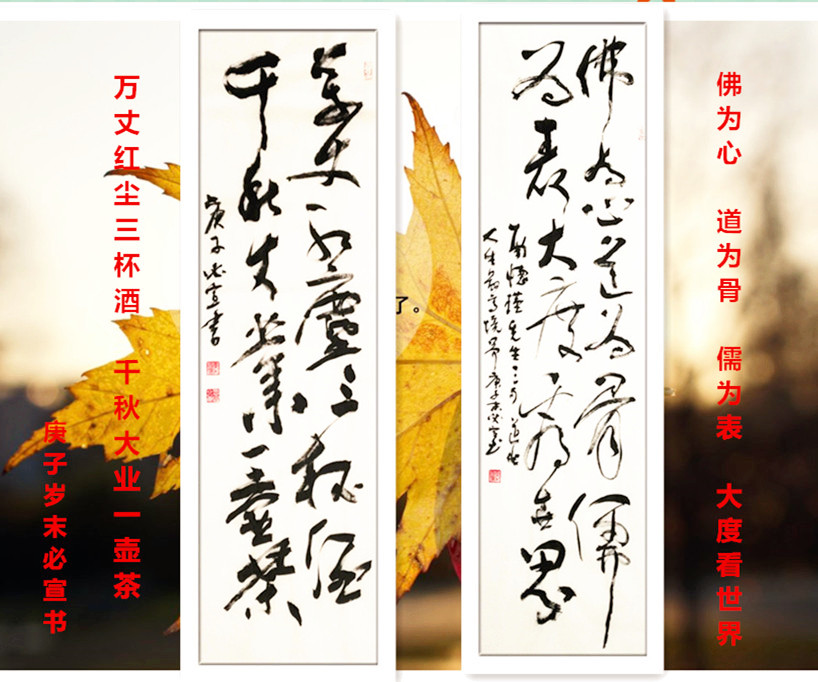 佛为心 道为骨 儒为表 大度看世界
佛为心道为骨儒
为表大度看世界
南懷瑾先生之句 道出
人生最高境界庚子末必宣书
了。
萬丈红塵三杯酒
千秋大業一壺茶
庚子必宣書
万丈红尘三杯酒 千秋大业一壶茶
庚子岁末必宣书